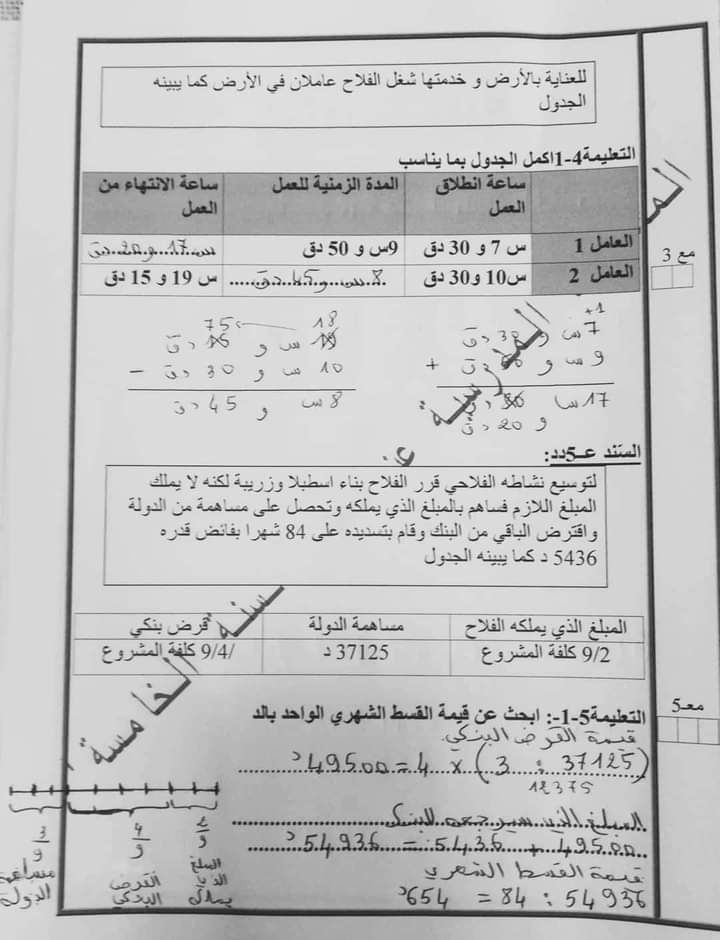 للعناية بالأرض و خدمتها شغل الفلاح عاملان في الأرض كما يبينه
الجدول
التعليمة4-1اكمل الجدول بما يناسب
ساعة انطلاق العمل	المدة الزمنية للعمل	ساعة الانتهاء من العمل
العامل 1	س 7 و 30 دق	9س و 50 دق	س 17 و 20 دق
العامل 2	س10 و30 دق	8 س و 45 دق	س 19 و 15 دق
مع 3
+1
7 س و 30 دق
+ 9 س و 50 دق
17 س 80 دق
و 20 دق
18 75
19 س و 15 دق
- 10 س و 30 دق
8 س و 45 دق
السند عـ5دد:
لتوسيع نشاطه الفلاحي قرر الفلاح بناء اسطبلا وزريبة لكنه لا يملك
المبلغ اللازم فساهم بالمبلغ الذي يملكه وتحصل على مساهمة من الدولة
واقترض الباقي من البنك وقام بتسديده على 84 شهرا بفائض قدره
5436 د كما يبينه الجدول
المبلغ الذي يملكه الفلاح	مساهمة الدولة	قرض بنكي
9/2 كلفة المشروع	37125 د	/9/4 كلفة المشروع
معـ5
التعليمة5-1-: ابحث عن قيمة القسط الشهري الواحد بالد
قيمة القرض البنكي
(37125 : 3) x 4 = 49500 د
12375
المبلغ الذي سيرجعه للبنك
49500 + 5436 = 54936 د
قيمة القسط الشهري
54936 : 84 = 654 د
2/9 المبلغ الذي يملكه
4/9 القرض البنكي
3/9 مساهمة الدولة
المدرسة
سنة الخامسة